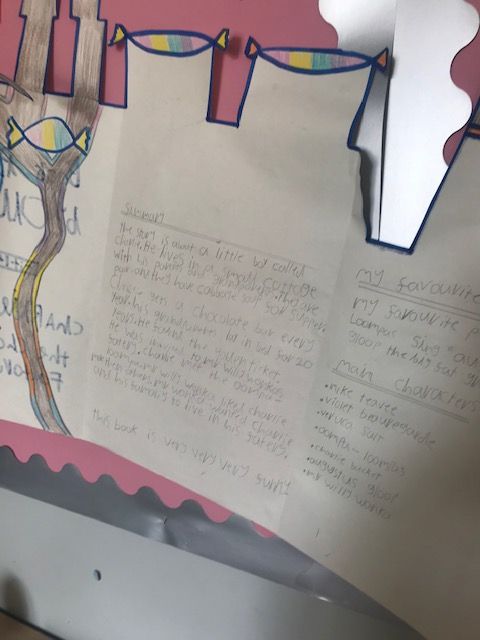 Summary
The story is about a little boy called
charlie. He lives in a small cottage
with his parents and grandparents. They are
poor and they have cabbage soup for supper.
Charlie gets a chocolate bar every
year. his grandparents lay in bed for 20
years. He found the golden ticket
He was invited to mr willy wonkers
factory. charlie met the oompa-
loompas. mr willy wonka liked charlie
and his family to live in his factory.
This book is very very very funny
my favourite
my favourite p
Loompas Sing "au
gloop the big fat
main characters
• mike teavee
• violet beauregarde
• veruca salt
• oompa-loompas
• charlie bucket
• augustus gloop
• mr willy wonka